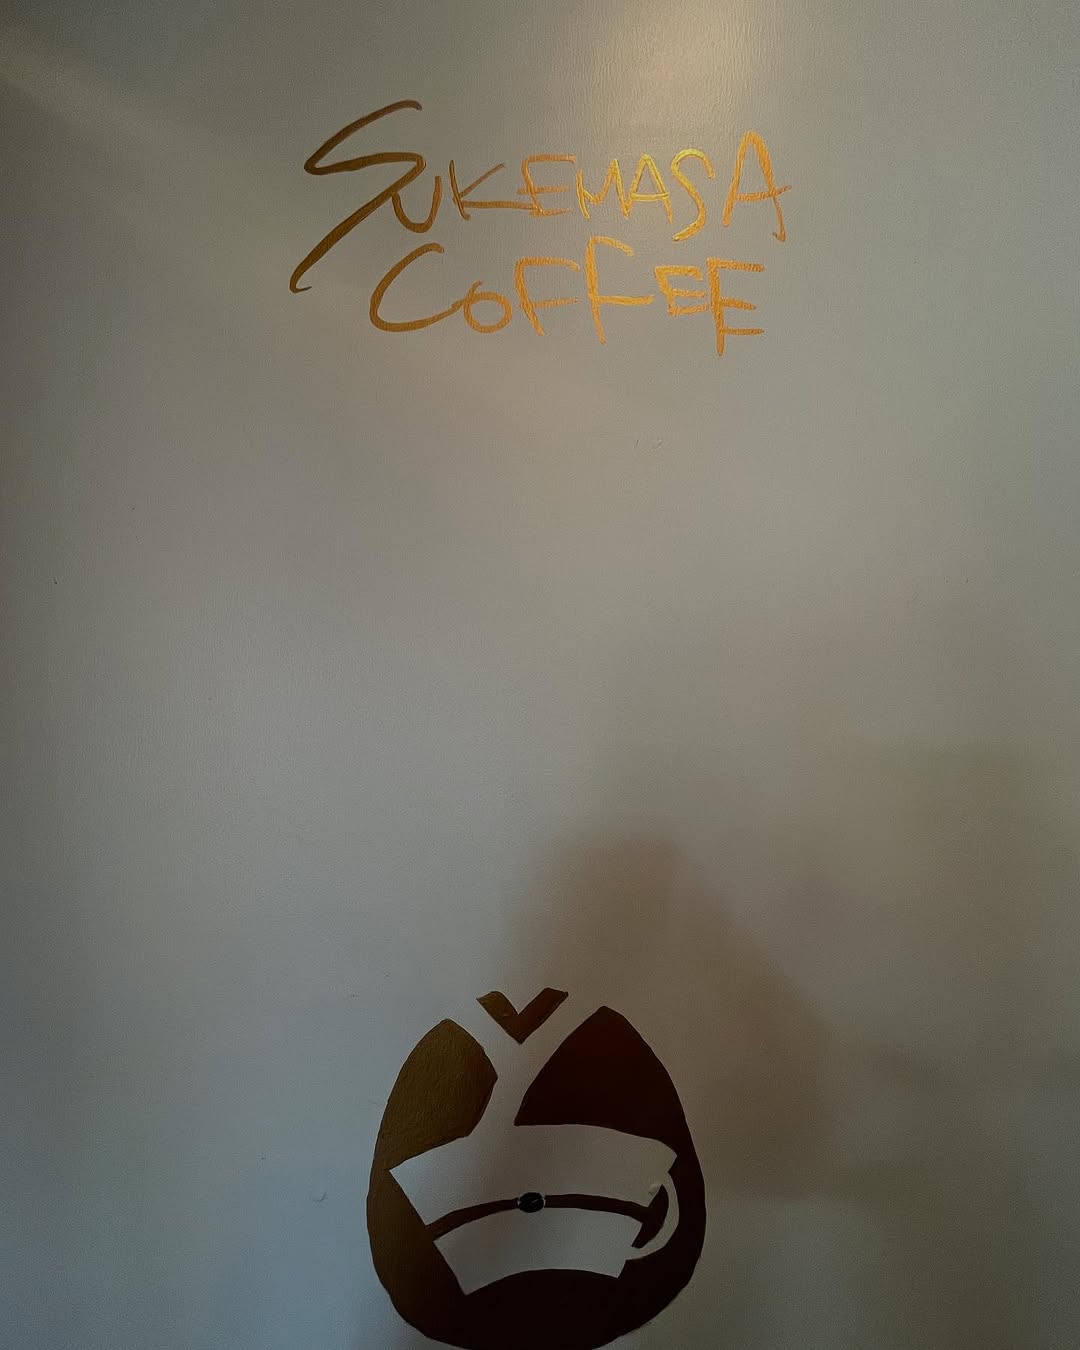 SUKEMASA
COFFEE